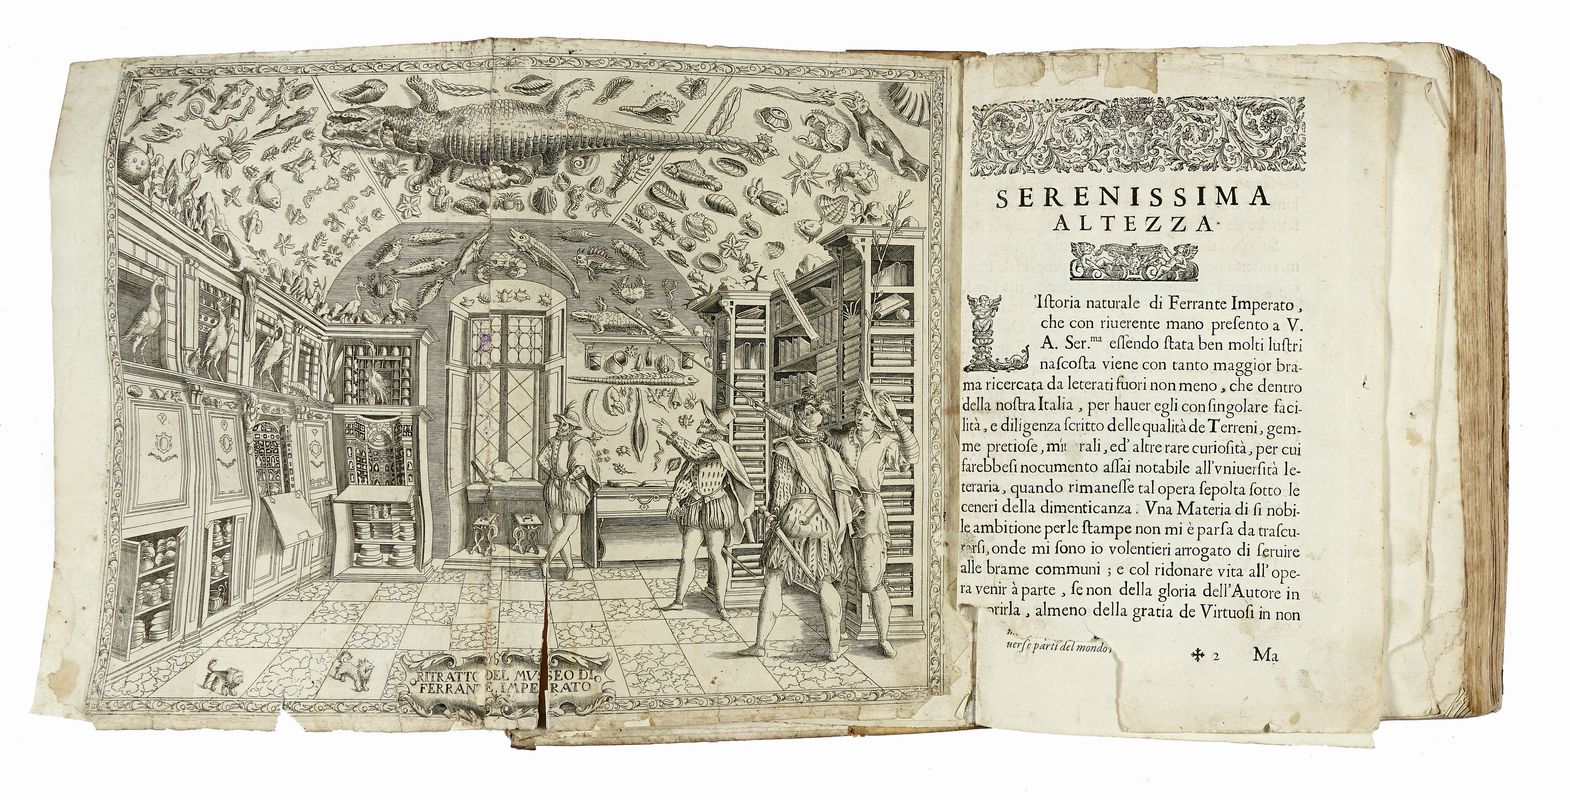 RITRATTO DEL MUSEO DI
FERRANTE IMPERATO
SERENISSIMA
ALTEZZA.
L'Iſtoria naturale di Ferrante Imperato,
che con riuerente mano preſento a V.
A. Ser.ma eſſendo ſtata ben molti luſtri
naſcoſta viene con tanto maggior bra-
ma ricercata da leterati fuori non meno, che dentro
della noſtra Italia, per hauer egli con ſingolare faci-
lità, e diligenza ſcritto delle qualità de Terreni, gem-
me pretioſe, mi rali, ed' altre rare curioſità, per cui
ſarebbeſi nocumento aſſai notabile all'vniuerſità le-
teraria, quando rimaneſſe tal opera ſepolta ſotto le
ceneri della dimenticanza. Vna Materia di ſi nobi-
le ambitione per le ſtampe non mi è parſa da traſcu-
rarſi, onde mi ſono io volentieri arrogato di ſeruire
alle brame communi; e col ridonare vita all'ope-
ra venir à parte, ſe non della gloria dell'Autore in
almeno della gratia de Virtuoſi in non
uerſe parti del mondo,
✠ 2 Ma